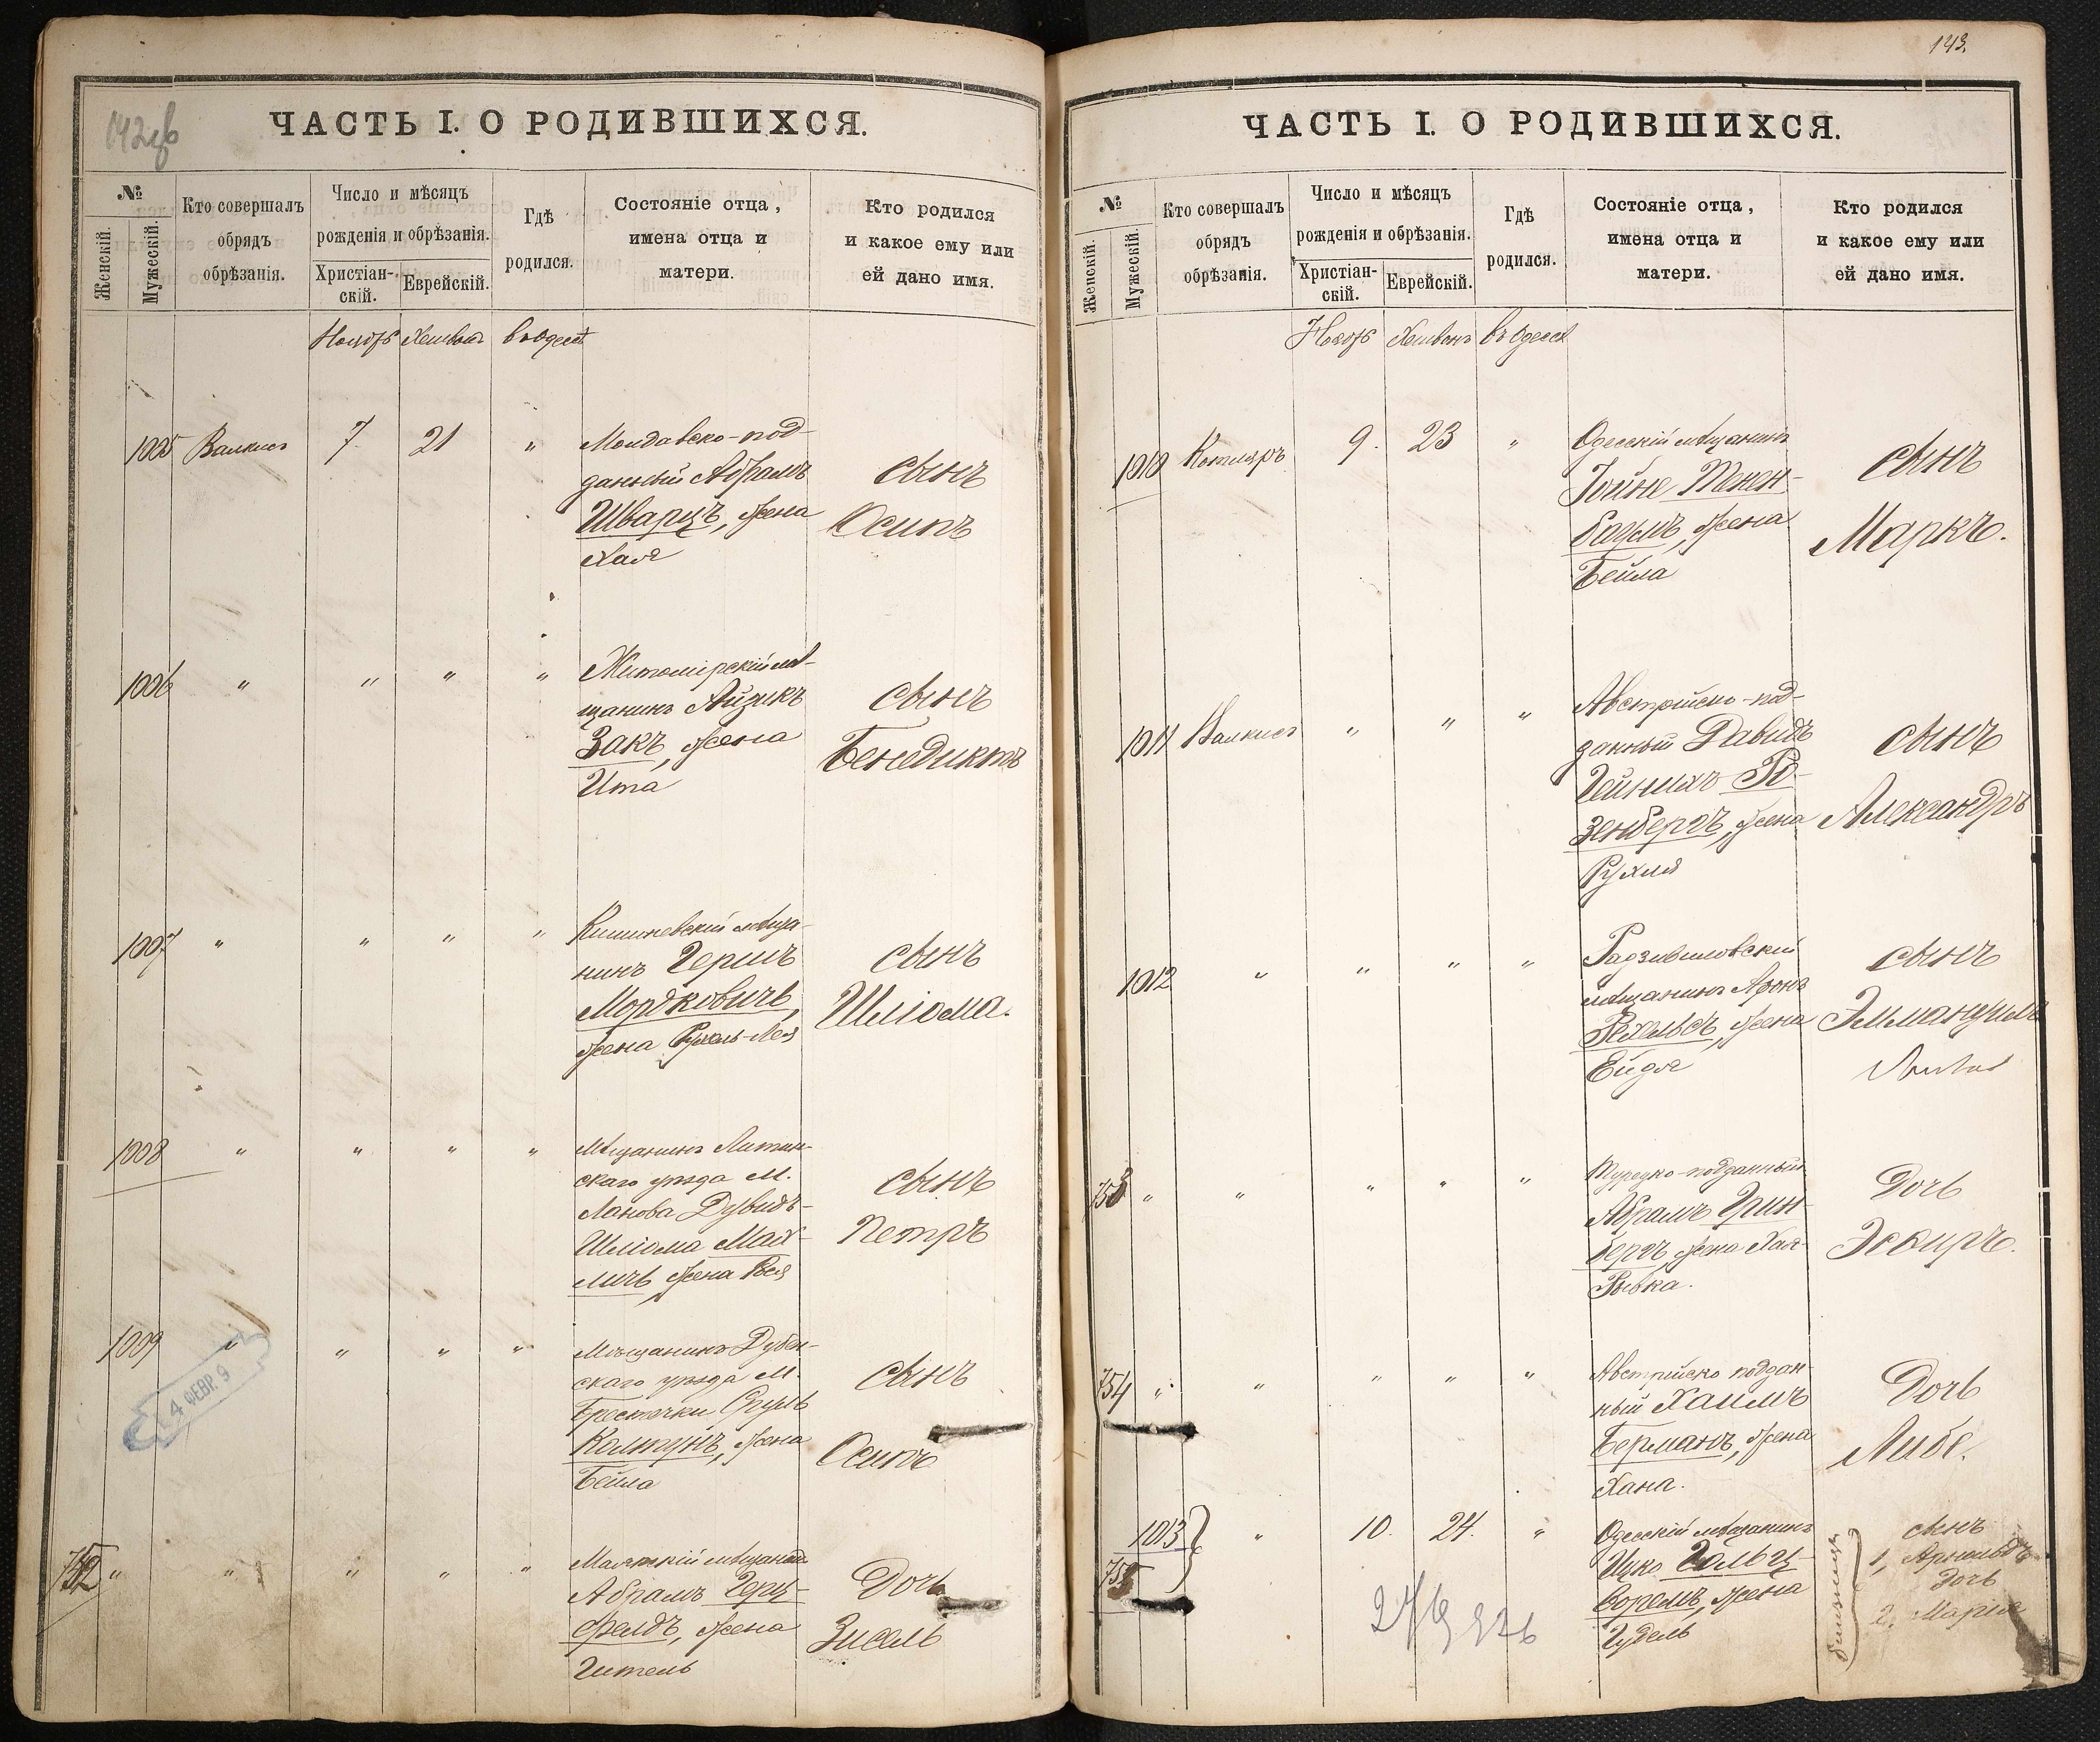 142 об
ЧАСТЬ I. О РОДИВШИХСЯ.
№
Женскій.
Мужескій.
Кто совершалъ
обрядъ
обрѣзанія.
Число и мѣсяцъ
рожденія и обрѣзанія.
Христіан-
скій.
Еврейскій.
Гдѣ
родился.
Состояніе отца,
имена отца и
матери.
Кто родился
и какое ему или
ей дано имя.
Ноябрь Хешвонъ въ Одессѣ
1005 Валкисъ 7. 21 "
Молдавско-под-
данный Абрамъ
Шварцъ, жена
Хая
сынъ
Осипъ
1006 " " " "
Житомірскій мѣ-
щанинъ Айзикъ
Закъ, жена
Ита
сынъ
Бенедиктъ
1007 " " " "
Кишиневскій мѣща-
нинъ Гершъ
Мордковичъ,
жена Рухель-Лея
сынъ
Шліома.
1008 " " " "
Мѣщанинъ Латин-
скаго уѣзда м.
Дувидъ-
Шліома
жена
сынъ
Петръ
1009 " " " "
Мѣщанинъ Дубен-
скаго уѣзда м.
Берестечки
Колтунъ, жена
Бейла
сынъ
Осипъ
4 ФЕВР. 9
752 " " " " "
мѣщанинъ
Абрамъ Герц-
фельдъ, жена
Гитель
Дочь
Зисель
143.
ЧАСТЬ I. О РОДИВШИХСЯ.
№
Женскій.
Мужескій.
Кто совершалъ
обрядъ
обрѣзанія.
Число и мѣсяцъ
рожденія и обрѣзанія.
Христіан-
скій.
Еврейскій.
Гдѣ
родился.
Состояніе отца,
имена отца и
матери.
Кто родился
и какое ему или
ей дано имя.
Ноябрь Хешвонъ въ Одессѣ
1010 Котляръ 9. 23 "
Одесскій мѣщанинъ
Іойне Тенен-
баумъ, жена
Бейла
сынъ
Маркъ.
1011 Валкисъ " " "
Австрійско-под-
данный Давидъ
Гейнихъ Ро-
зенбергъ, жена
Рухля
сынъ
Александръ
1012 " " " "
Радзивиловскій
мѣщанинъ Аронъ
жена
Ейдя
сынъ
Эммануилъ
753 " " " " "
Турецко-подданный
Абрамъ Грин-
бергъ, жена Хая-
Рывка.
Дочь
Эсѳирь.
754 " " " " "
Австрійско поддан-
ный Хаимъ
Берманъ, жена
Хана.
Дочь
Либе.
1013 " 10. 24. "
755
Одесскій мѣщанинъ
Ицко Гольц-
жена
Гудель
близнецы
сынъ
1, Арнольдъ
дочь
2, Марія